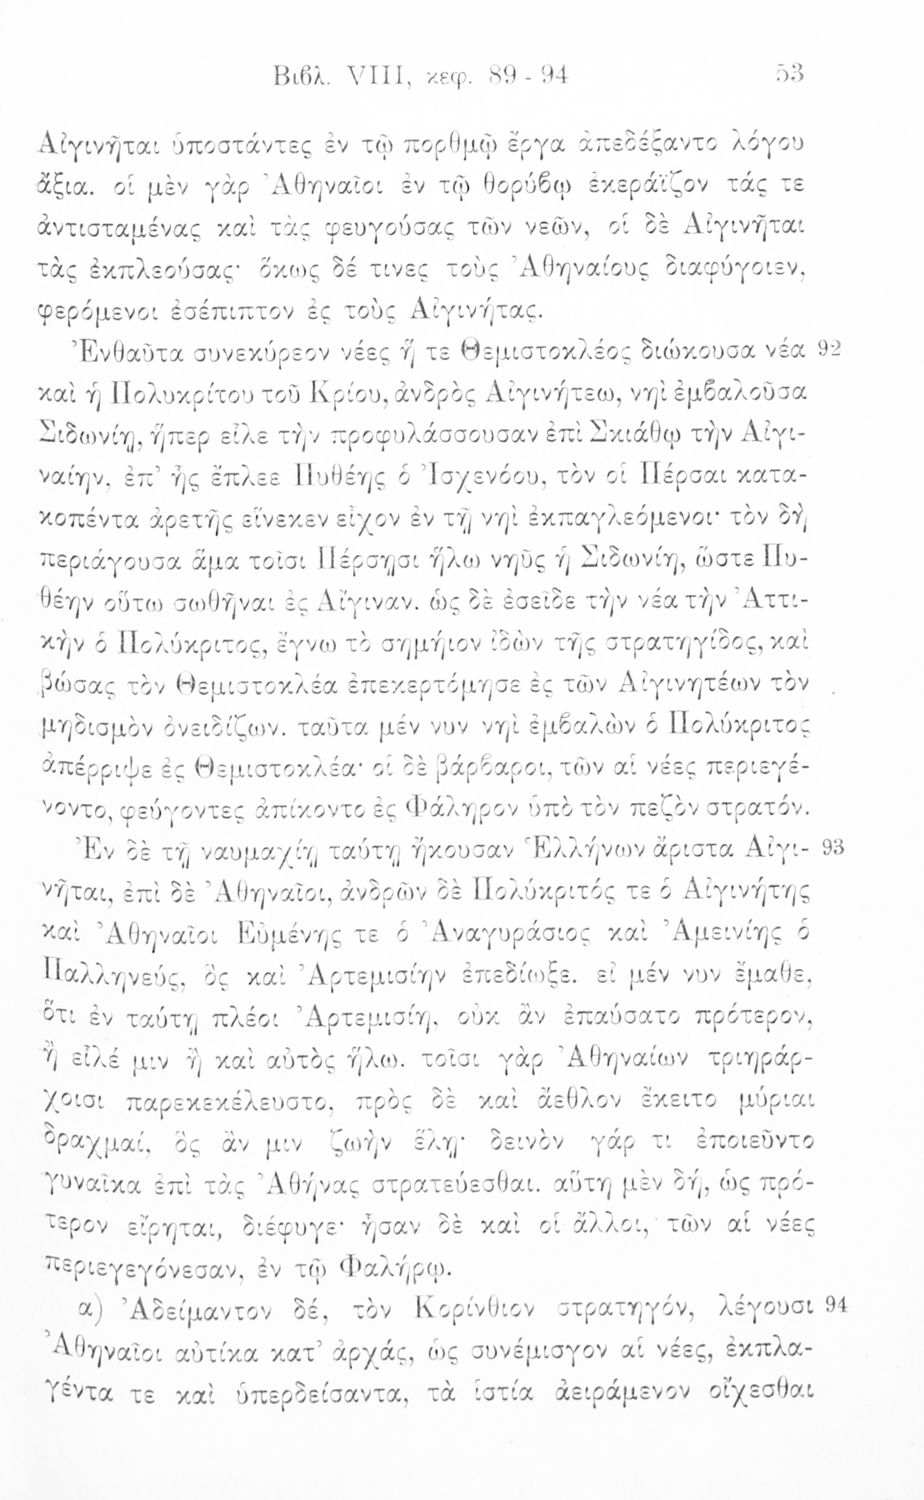 Βιβλ. VIII, κεφ. 89 - 94 53
Αἰγινῆται ὑποστάντες ἐν τῷ πορθμῷ ἔργα ἀπεδέξαντο λόγου
ἄξια. οἱ μὲν γὰρ Ἀθηναῖοι ἐν τῷ θορύβῳ ἐκεράϊζον τάς τε
ἀντισταμένας καὶ τὰς φευγούσας τῶν νεῶν, οἱ δὲ Αἰγινῆται
τὰς ἐκπλεούσας· ὅκως δέ τινες τοὺς Ἀθηναίους διαφύγοιεν,
φερόμενοι ἐσέπιπτον ἐς τοὺς Αἰγινήτας.
Ἐνθαῦτα συνεκύρεον νέες ἥ τε Θεμιστοκλέος διώκουσα νέα 92
καὶ ἡ Πολυκρίτου τοῦ Κρίου, ἀνδρὸς Αἰγινήτεω, νηὶ ἐμβαλοῦσα
Σιδωνίῃ, ἥπερ εἷλε τὴν προφυλάσσουσαν ἐπὶ Σκιάθῳ τὴν Αἰγι-
ναίην, ἐπ’ ἧς ἔπλεε Πυθέης ὁ Ἰσχενόου, τὸν οἱ Πέρσαι κατα-
κοπέντα ἀρετῆς εἵνεκεν εἶχον ἐν τῇ νηὶ ἐκπαγλεόμενοι· τὸν δὴ
περιάγουσα ἅμα τοῖσι Πέρσῃσι ἥλω νηῦς ἡ Σιδωνίη, ὥστε Πυ-
θέην οὕτω σωθῆναι ἐς Αἴγιναν. ὡς δὲ ἐσεῖδε τὴν νέα τὴν Ἀττι-
κὴν ὁ Πολύκριτος, ἔγνω τὸ σημήιον ἰδὼν τῆς στρατηγίδος, καὶ
βώσας τὸν Θεμιστοκλέα ἐπεκερτόμησε ἐς τῶν Αἰγινητέων τὸν
μηδισμὸν ὀνειδίζων. ταῦτα μέν νυν νηὶ ἐμβαλὼν ὁ Πολύκριτος
ἀπέρριψε ἐς Θεμιστοκλέα· οἱ δὲ βάρβαροι, τῶν αἱ νέες περιεγέ-
νοντο, φεύγοντες ἀπίκοντο ἐς Φάληρον ὑπὸ τὸν πεζὸν στρατόν.
Ἐν δὲ τῇ ναυμαχίῃ ταύτῃ ἤκουσαν Ἑλλήνων ἄριστα Αἰγι- 93
νῆται, ἐπὶ δὲ Ἀθηναῖοι, ἀνδρῶν δὲ Πολύκριτός τε ὁ Αἰγινήτης
καὶ Ἀθηναῖοι Εὐμένης τε ὁ Ἀναγυράσιος καὶ Ἀμεινίης ὁ
Παλληνεύς, ὃς καὶ Ἀρτεμισίην ἐπεδίωξε. εἰ μέν νυν ἔμαθε,
ὅτι ἐν ταύτῃ πλέοι Ἀρτεμισίη, οὐκ ἂν ἐπαύσατο πρότερον,
ἢ εἷλέ μιν ἢ καὶ αὐτὸς ἥλω. τοῖσι γὰρ Ἀθηναίων τριηράρ-
χοισι παρεκεκέλευστο, πρὸς δὲ καὶ ἄεθλον ἔκειτο μύριαι
δραχμαί, ὃς ἄν μιν ζωὴν ἕλῃ· δεινὸν γάρ τι ἐποιεῦντο
γυναῖκα ἐπὶ τὰς Ἀθήνας στρατεύεσθαι. αὕτη μὲν δή, ὡς πρό-
τερον εἴρηται, διέφυγε· ἦσαν δὲ καὶ οἱ ἄλλοι, τῶν αἱ νέες
περιεγεγόνεσαν, ἐν τῷ Φαλήρῳ.
α) Ἀδείμαντον δέ, τὸν Κορίνθιον στρατηγόν, λέγουσι 94
Ἀθηναῖοι αὐτίκα κατ’ ἀρχάς, ὡς συνέμισγον αἱ νέες, ἐκπλα-
γέντα τε καὶ ὑπερδείσαντα, τὰ ἱστία ἀειράμενον οἴχεσθαι